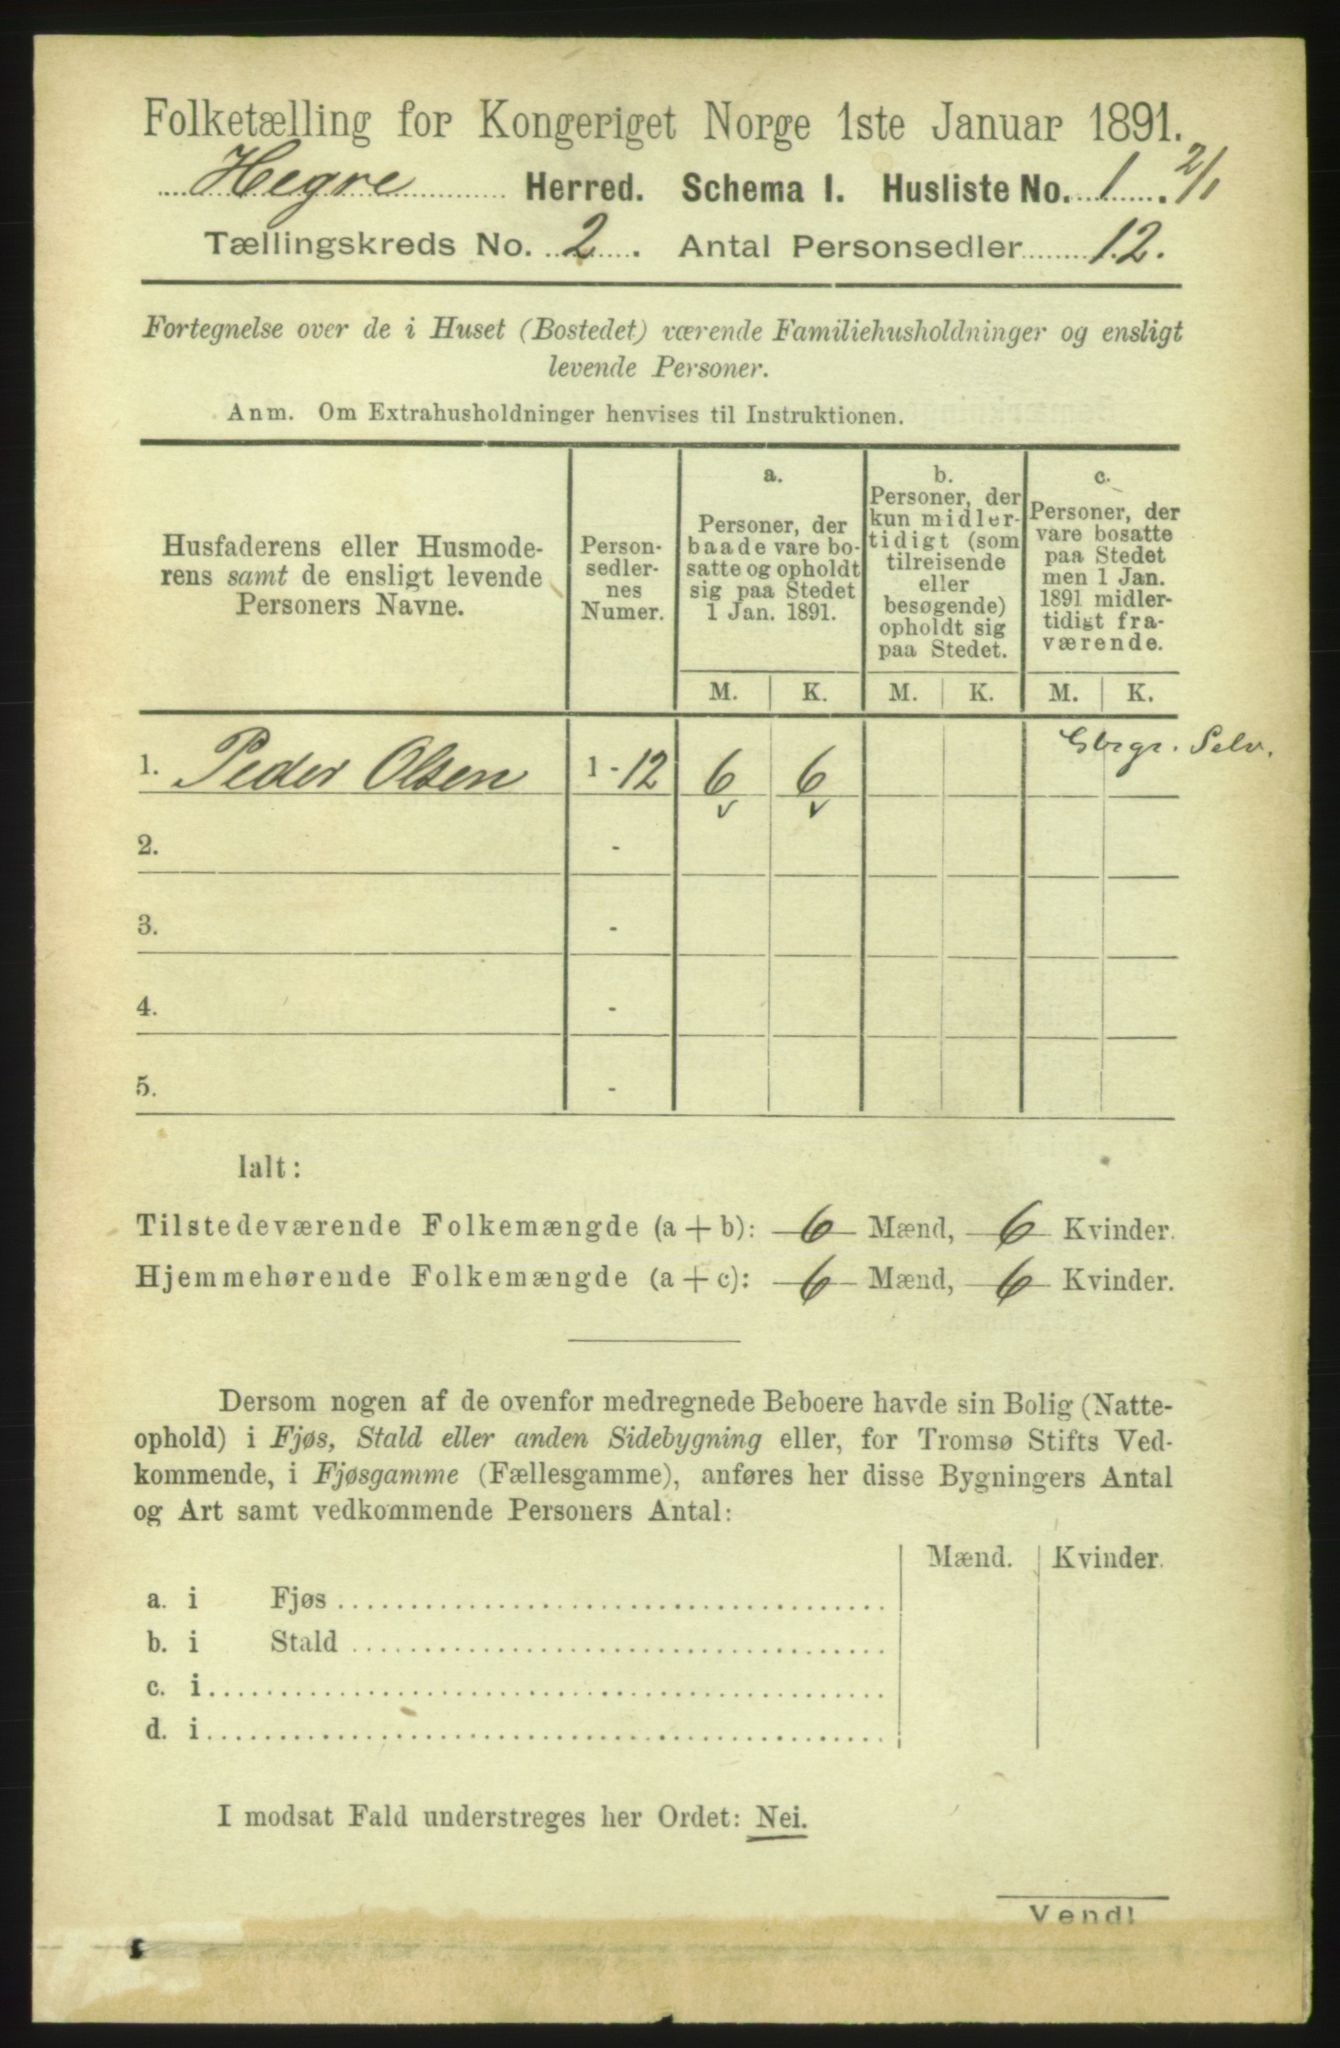 Folketælling for Kongeriget Norge 1ste Januar 1891.
Hegre Herred. Schema I. Husliste No. 1. 2/1
Tællingskreds No. 2. Antal Personsedler 12.
Fortegnelse over de i Huset (Bostedet) værende Familiehusholdninger og ensligt
levende Personer.
Anm. Om Extrahusholdninger henvises til Instruktionen.
Husfaderens eller Husmode-
rens samt de ensligt levende
Personers Navne.
Person-
sedler-
nes
Numer.
a.
Personer, der
baade vare bo-
satte og opholdt
sig paa Stedet
1 Jan. 1891.
b.
Personer, der
kun midler-
tidigt (som
tilreisende
eller
besøgende)
opholdt sig
paa Stedet.
c.
Personer, der
vare bosatte
paa Stedet
men 1 Jan.
1891 midler-
tidigt fra-
værende.
M. K. M. K. M. K.
1. Peder Olsen 1-12 6 6 Gbrgr. Selv.
2. -
3. -
4. -
5. -
Ialt:
Tilstedeværende Folkemængde (a + b): 6 Mænd, 6 Kvinder.
Hjemmehørende Folkemængde (a + c): 6 Mænd, 6 Kvinder.
Dersom nogen af de ovenfor medregnede Beboere havde sin Bolig (Natte-
ophold) i Fjøs, Stald eller anden Sidebygning eller, for Tromsø Stifts Ved-
kommende, i Fjøsgamme (Fællesgamme), anføres her disse Bygningers Antal
og Art samt vedkommende Personers Antal:
Mænd. Kvinder.
a. i Fjøs
b. i Stald
c. i
d. i
I modsat Fald understreges her Ordet: Nei.
Vend!